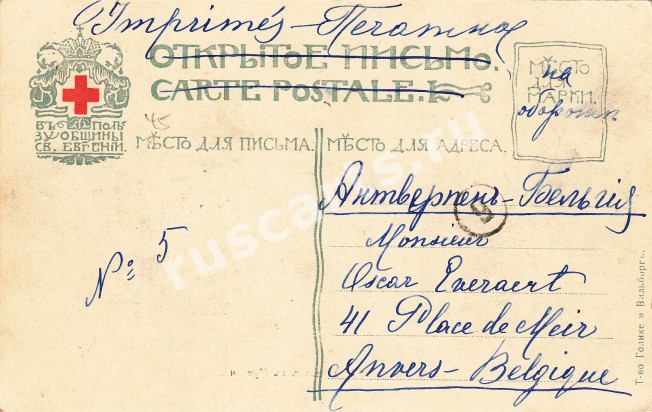 Imprimés - Печатное
ОТКРЫТОЕ ПИСЬМО.
CARTE POSTALE.
МѢСТО
ДЛЯ
МАРКИ.
на
оборотѣ.
45
ВЪ ПОЛЬ
ЗУ ОБЩИНЫ
СВ. ЕВГЕНІИ.
МѢСТО ДЛЯ ПИСЬМА.
МѢСТО ДЛЯ АДРЕСА.
Антверпенъ - Бельгія
9
№ 5
Monsieur
Oscar Everaert
41 Place de Meir
Anvers - Belgique
Т-во Голике и Вильборгъ.
ruscards.ru